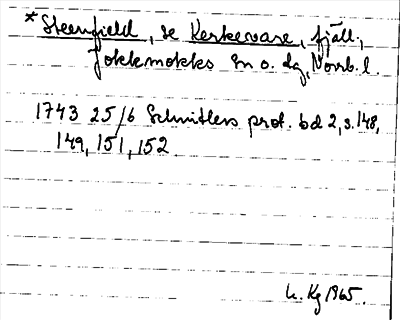 *Steenfield, se Kerkevare, fjäll,
Jokkmokks sn o. dg, Norrb. l.
1743 25/6 Schnitlers prot. bd 2, s. 148,
149, 151, 152
h. Kg 1965.